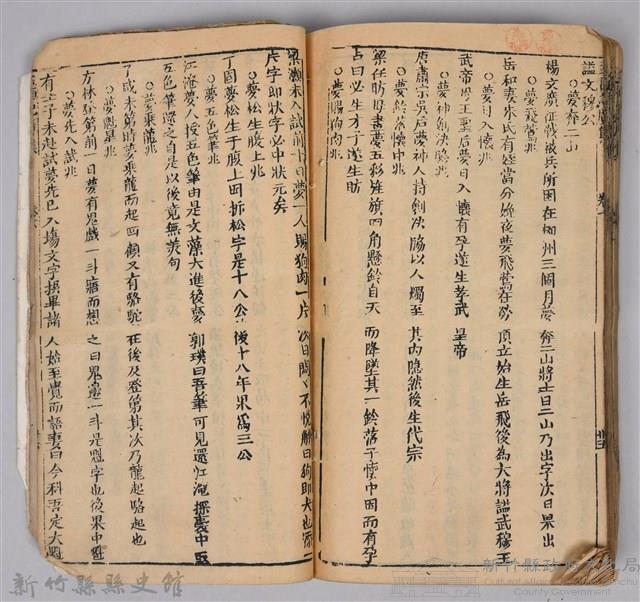 謚文穆公
○夢奔二山
楊文廣征戰被兵所困在柳州三個月夢奔二山將士曰二山乃出字次日果出
○夢飛鶯兆
岳和妻朱氏有娠當分娩夜夢飛鶯在於頂立始生岳飛後為大將謚武穆王
○夢日入懷兆
武帝母王皇后夢日入懷有孕遂生孝武皇帝
○夢神劍決脇兆
唐肅宗吳后夢神人持劍决脇以人燭至其內隱然後生代宗
○夢鈴落懷中兆
梁任昉母晝夢五彩旌旗四角懸鈴自天而降墜其一鈴落于懷中因而有孕
占曰必生才子遂生昉
○夢賜狗肉兆
梁灝未入試前十日夢一人賜狗肉一片次日悶々不悅解曰狗即犬也添
片字即狀字必中狀元矣
○夢松生腹上兆
丁固夢松生于腹上因拆松字是十八公後十八年果為三公
○夢五色筆兆
江淹夢人授五色筆由是文藻大進後夢郭璞曰吾筆可見還江淹探囊中取
五色筆還之自是以後竟無美句
○夢乘龍兆
了或未第時夢乘龍而起回顧又有駱駝在後及登第其次乃龍起駱起也
○夢魁星兆
方休未第前一日夢有鬼戲一斗寤而想之曰鬼邊一斗是魁字也後果中魁
○夢先入試兆
有士子未赴試夢先已入場文字撰畢諸人始至覺而語妻曰今科吾定大魁
新竹縣縣史館
新竹縣政府文化局
Cultural Affairs Bureau, Hsinchu
County Government